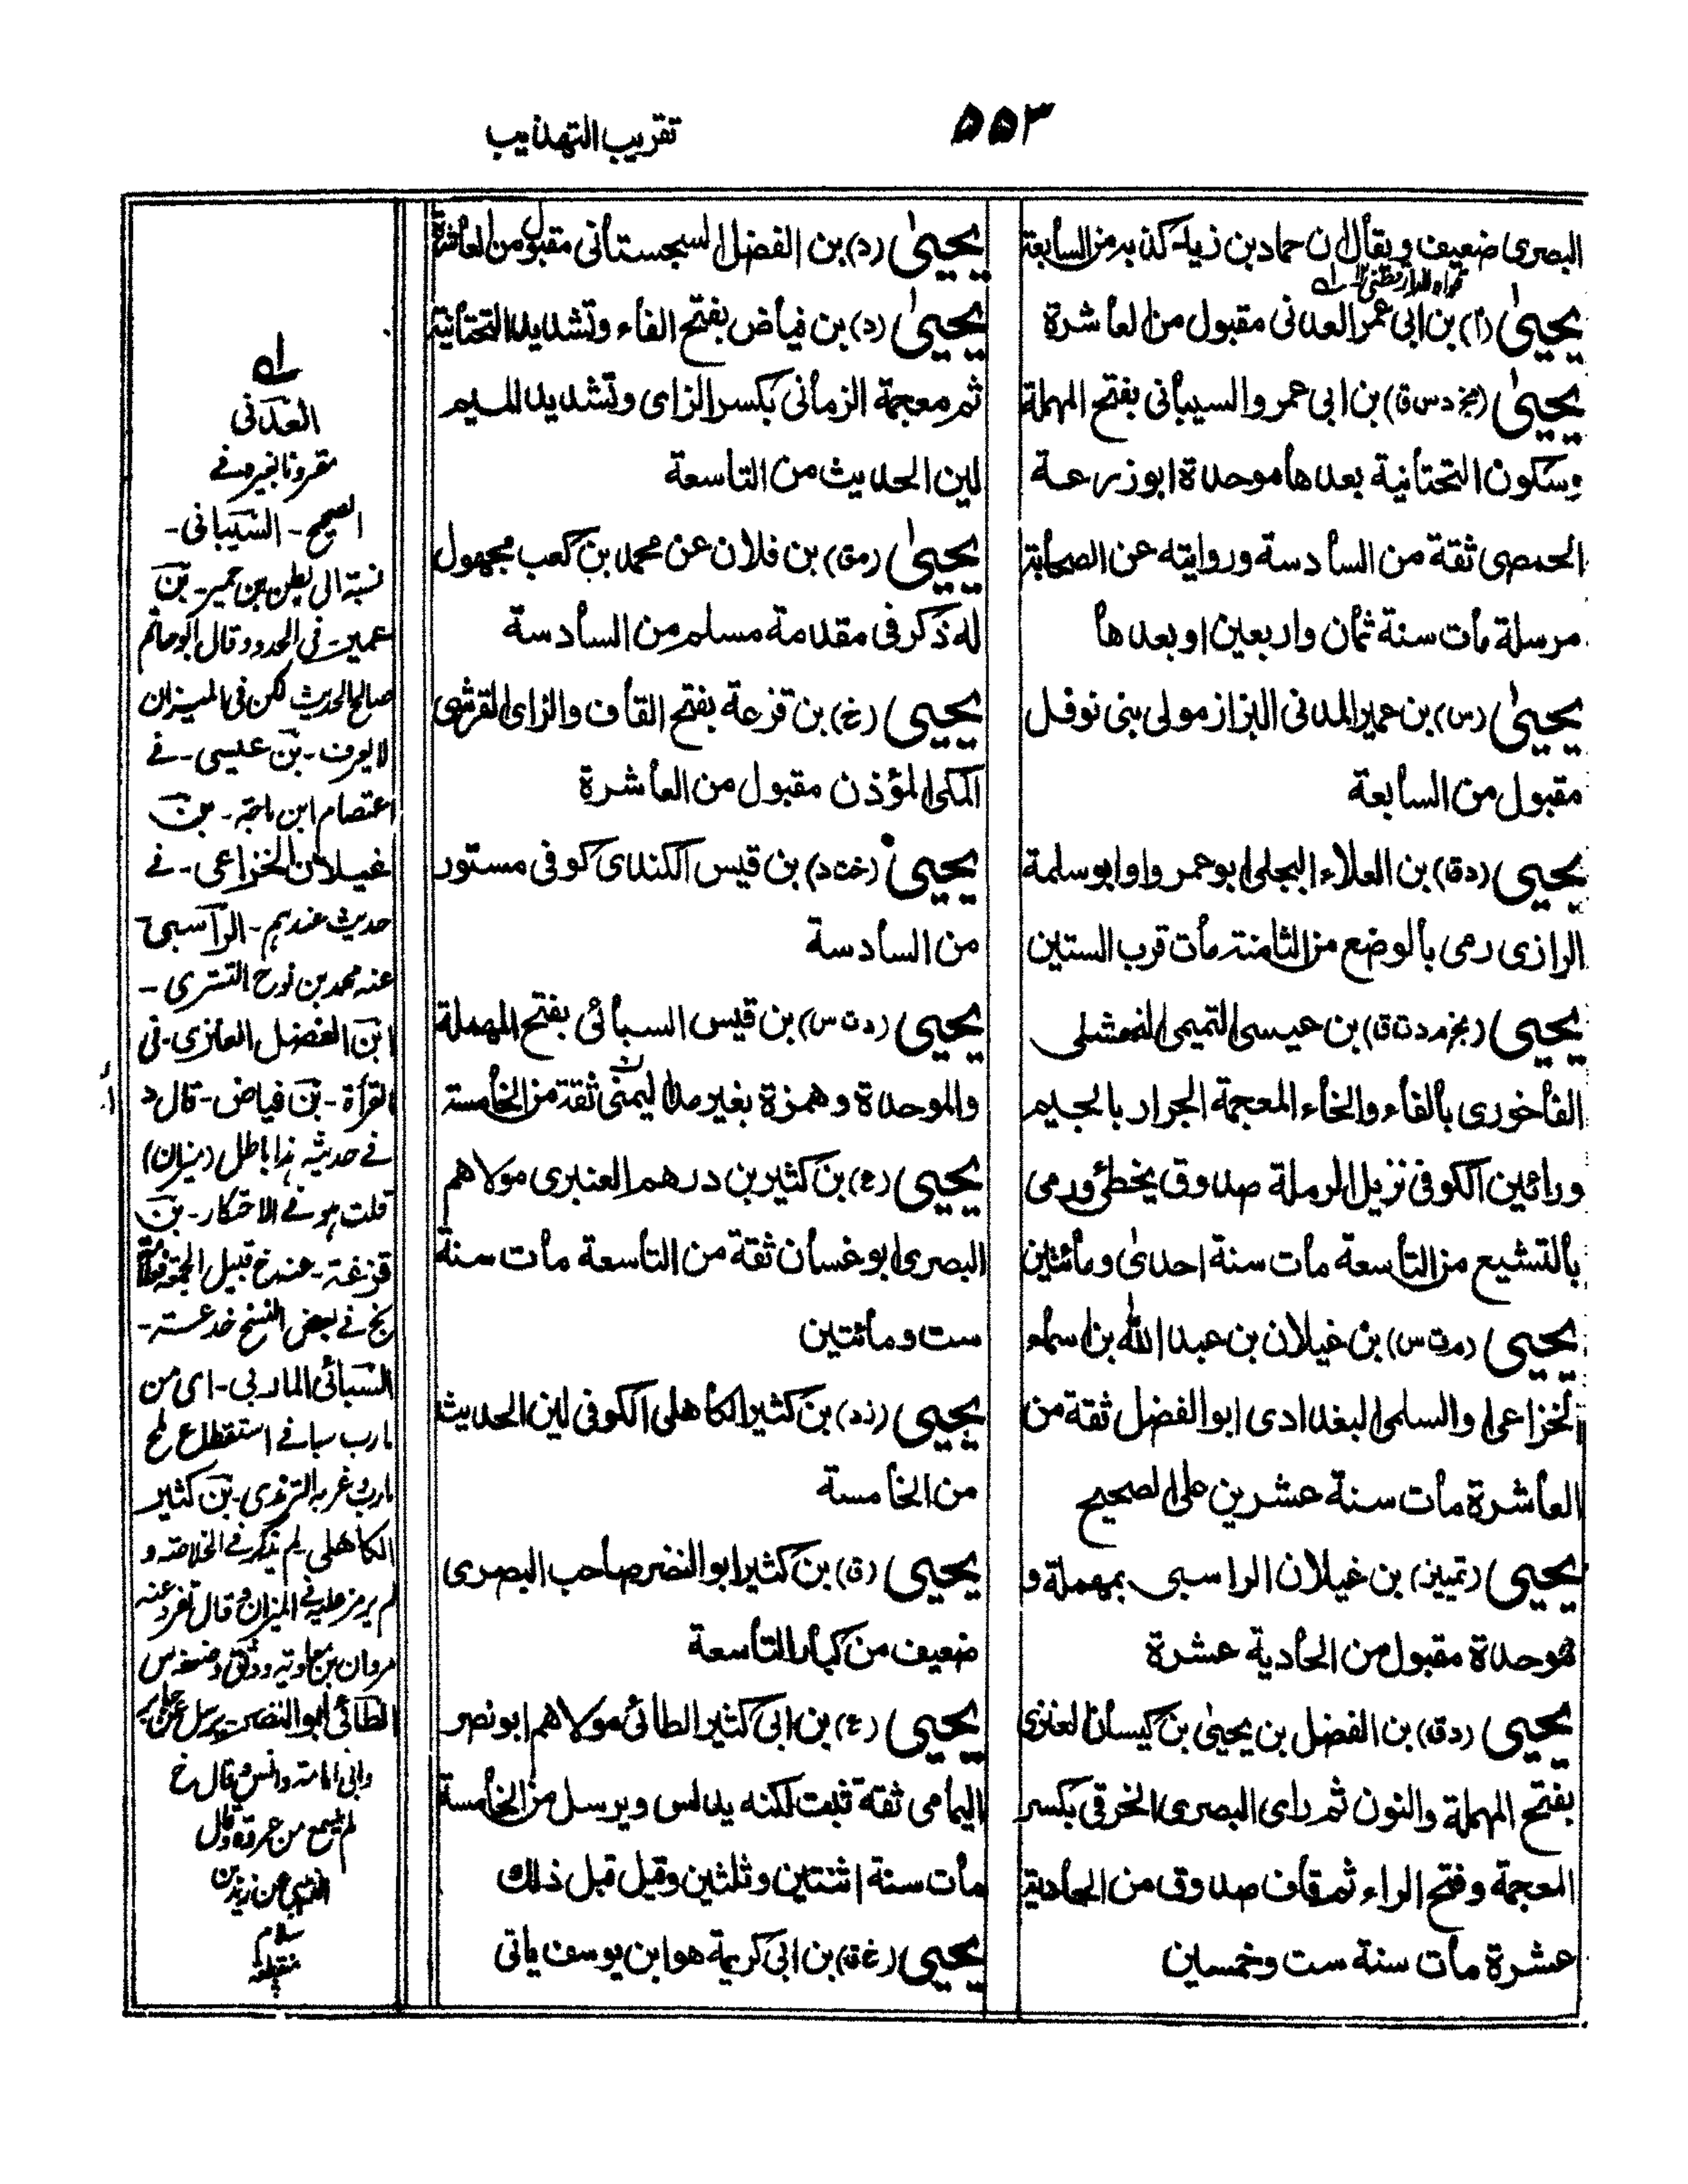 ٥٥٣
تقريب التهذيب
البصرى ضعيف ويقال ان حماد بن زيد كذبه من السابعة
يحيىٰ بن ابى عمر العدنى مقبول من العاشرة
يحيىٰ (بخ دس ق) بن ابى عمرو السيبانى بفتح المهملة
وسكون التحتانية بعدها موحدة ابو زرعة
الحمصى ثقة من السادسة وروايته عن الصحابة
مرسلة مات سنة ثمان واربعين او بعدها
يحيىٰ (س) بن عمير المدنى البزاز مولى بنى نوفل
مقبول من السابعة
يحيى (دق) بن العلاء البجلى ابو عمرو او ابو سلمة
الرازى رمى بالوضع من الثامنة مات قرب الستين
يحيى (بخ م د ت ق) بن عيسى التميمى النهشلى
الفاخورى بالفاء والخاء المعجمة الجرار بالجيم
ورائين الكوفى نزيل الرملة صدوق يخطئ ورمى
بالتشيع من التاسعة مات سنة احدىٰ ومائتين
يحيى (م ت س) بن غيلان بن عبد الله بن اسماء
الخزاعى او السلمى البغدادى ابو الفضل ثقة من
العاشرة مات سنة عشرين على الصحيح
يحيى (تمييز) بن غيلان الراسبى بمهملة و
موحدة مقبول من الحادية عشرة
يحيى (دق) بن الفضل بن يحيىٰ بن كيسان العنزى
بفتح المهملة والنون ثم زاى البصرى الخرقى بكسر
المعجمة وفتح الراء ثم قاف صدوق من الحادية
عشرة مات سنة ست وخمسين
يحيىٰ (د) بن الفضل السجستانى مقبول من العاشرة
يحيىٰ (د) بن فياض بفتح الفاء وتشديد التحتانية
ثم معجمة الزمانى بكسر الزاى وتشديد الميم
لين الحديث من التاسعة
يحيىٰ (مق) بن فلان عن محمد بن كعب مجهول
له ذكر فى مقدمة مسلم من السادسة
يحيى (خ) بن قزعة بفتح القاف والزاى القرشى
المكى المؤذن مقبول من العاشرة
يحيى (خت د) بن قيس الكندى كوفى مستور
من السادسة
يحيى (دت س) بن قيس السبائى بفتح المهملة
والموحدة وهمزة بغير مد اليمنى ثقة من الخامسة
يحيى (ع) بن كثير بن درهم العنبرى مولاهم
البصرى ابو غسان ثقة من التاسعة مات سنة
ست ومائتين
يحيى (زد) بن كثير الكاهلى الكوفى لين الحديث
من الخامسة
يحيى (ق) بن كثير ابو النضر صاحب البصرى
ضعيف من كبار التاسعة
يحيى (ع) بن ابى كثير الطائى مولاهم ابو نصر
اليمامى ثقة ثبت لكنه يدلس ويرسل من الخامسة
مات سنة اثنتين وثلثين وقيل قبل ذلك
يحيى (خ ق) بن ابى كريمة هو ابن يوسف ياتى
العدنى
مقرونا بغيره فى
الصحيح - السيبانى -
نسبة الى بطن من حمير - بن
عمير - فى الحدود وقال ابو حاتم
صالح الحديث لكن فى الميزان
لا يعرف - بن عيسى - فى
اعتصام ابن ماجة - بن
غيلان الخزاعى - فى
حديث عندهم - الراسبى
عنه محمد بن نوح التسترى -
ابن الفضل العنزى - فى
القرأة - بن فياض - قال د
فى حديثه هذا باطل (ميزان)
قلت هو فى الاحتكار - بن
قزعة - عند خ قبيل
فى بعض النسخ
السبائى الماربى - اى من
مارب سبا فى استقطاع
مارب غربه الترمذى - بن كثير
الكاهلى لم يذكر فى الخلاصة و
لم يرمز عليه فى الميزان وقال تفرد عنه
مروان بن معاوية وثق وضعفه س
الطائى ابو النصر - يرسل عن جابر
وابى امامة وانس قال خ
لم يسمع من عروة وقال
عن زيد بن
سلام
منقطعة